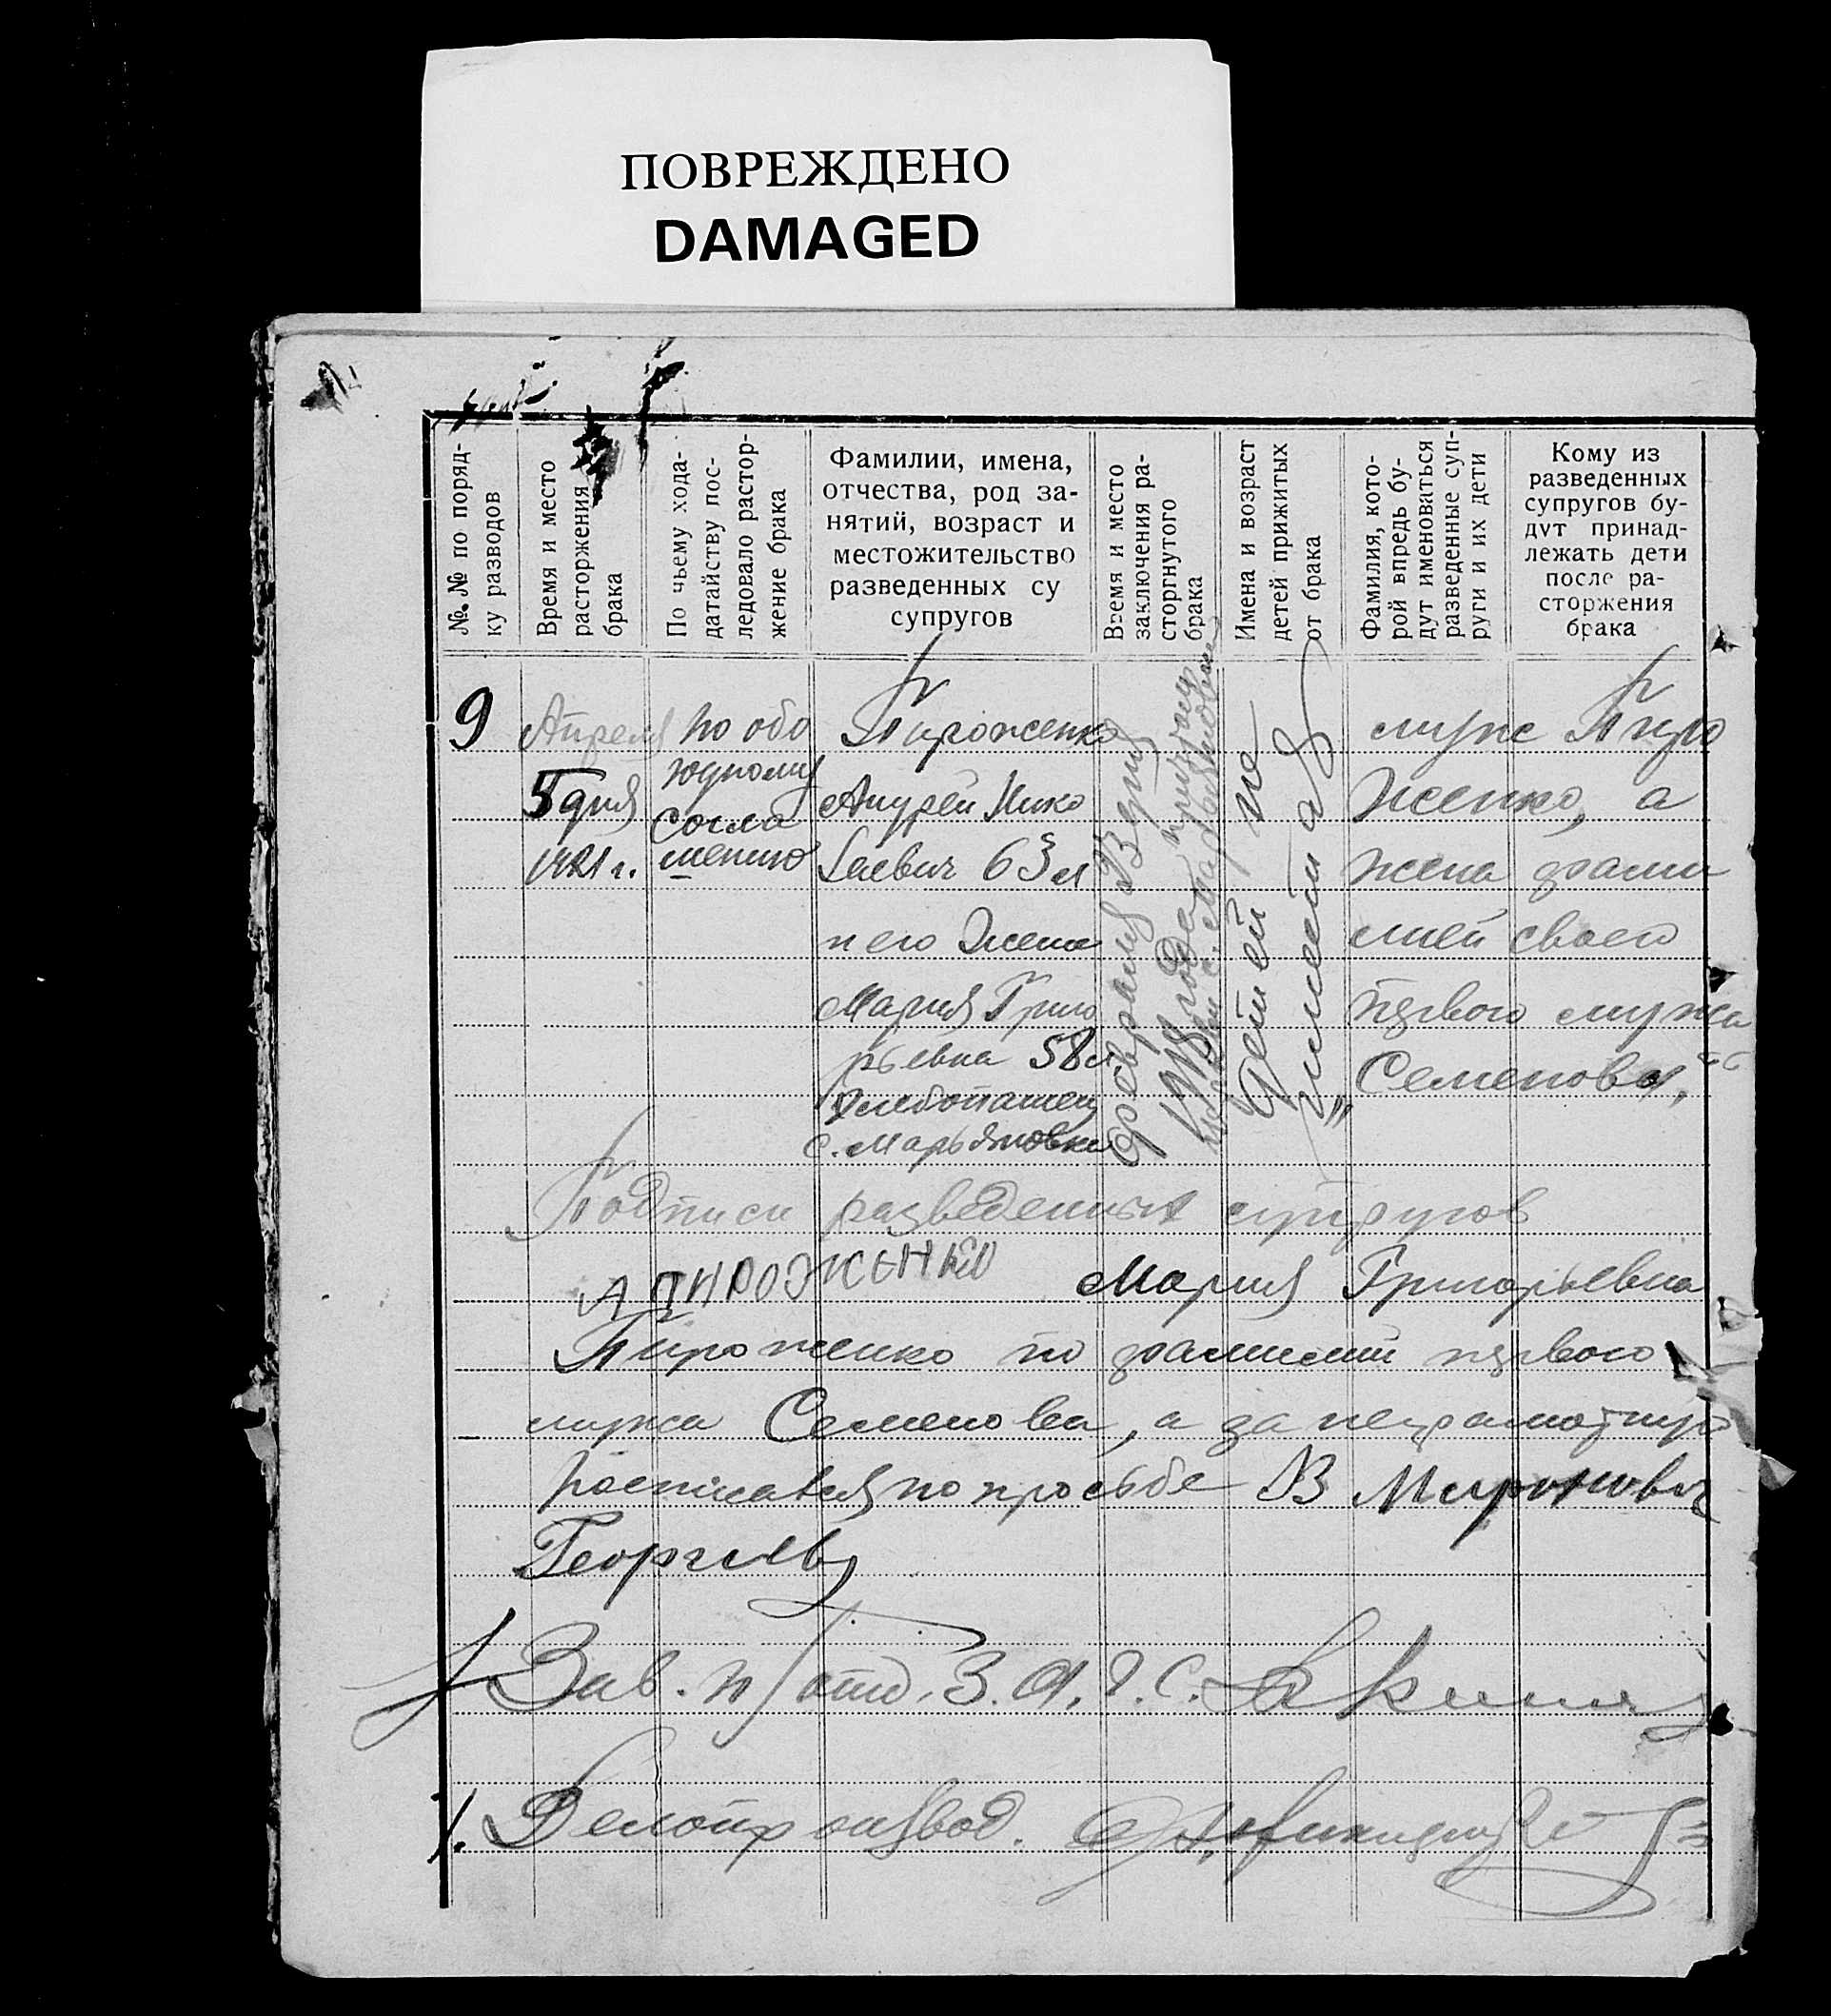 ПОВРЕЖДЕНО
DAMAGED
№№ по поряд-
ку разводов
Время и место
расторжения
брака
По чьему хода-
датайству пос-
ледовало растор-
жение брака
Фамилии, имена,
отчества, род за-
нятий, возраст и
местожительство
разведенных су
супругов
Время и место
заключения ра-
сторгнутого
брака
Имена и возраст
детей прижитых
от брака
Фамилия, кото-
рой впредь бу-
дут именоваться
разведенные суп-
руги и их дети
Кому из
разведенных
супругов бу-
дут принад-
лежать дети
после ра-
сторжения
брака
9
Апреля
5 дня
1921 г.
по обо
юдному
согла
шению
Пироженко
Андрей Нико
лаевич 63 л
и его жена
Мария Григо
рьевна 58 л
хлебопашец
с. Марьяновки
февраля
года
с. Марьяновки
Детей не
имеется
муж Пиро
женко, а
жена фами
лией своего
первого мужа
„Семенова"
Подписи разведенных супругов
А ПИРОЖЕНКО Мария Григорьевна
Пироженко по фамилии первого
мужа Семенова, а за неграмотную
расписался по просьбе В Миронович
Георгиев
Зав. п/отд. З.А.Г.С.
Делопроизвод.